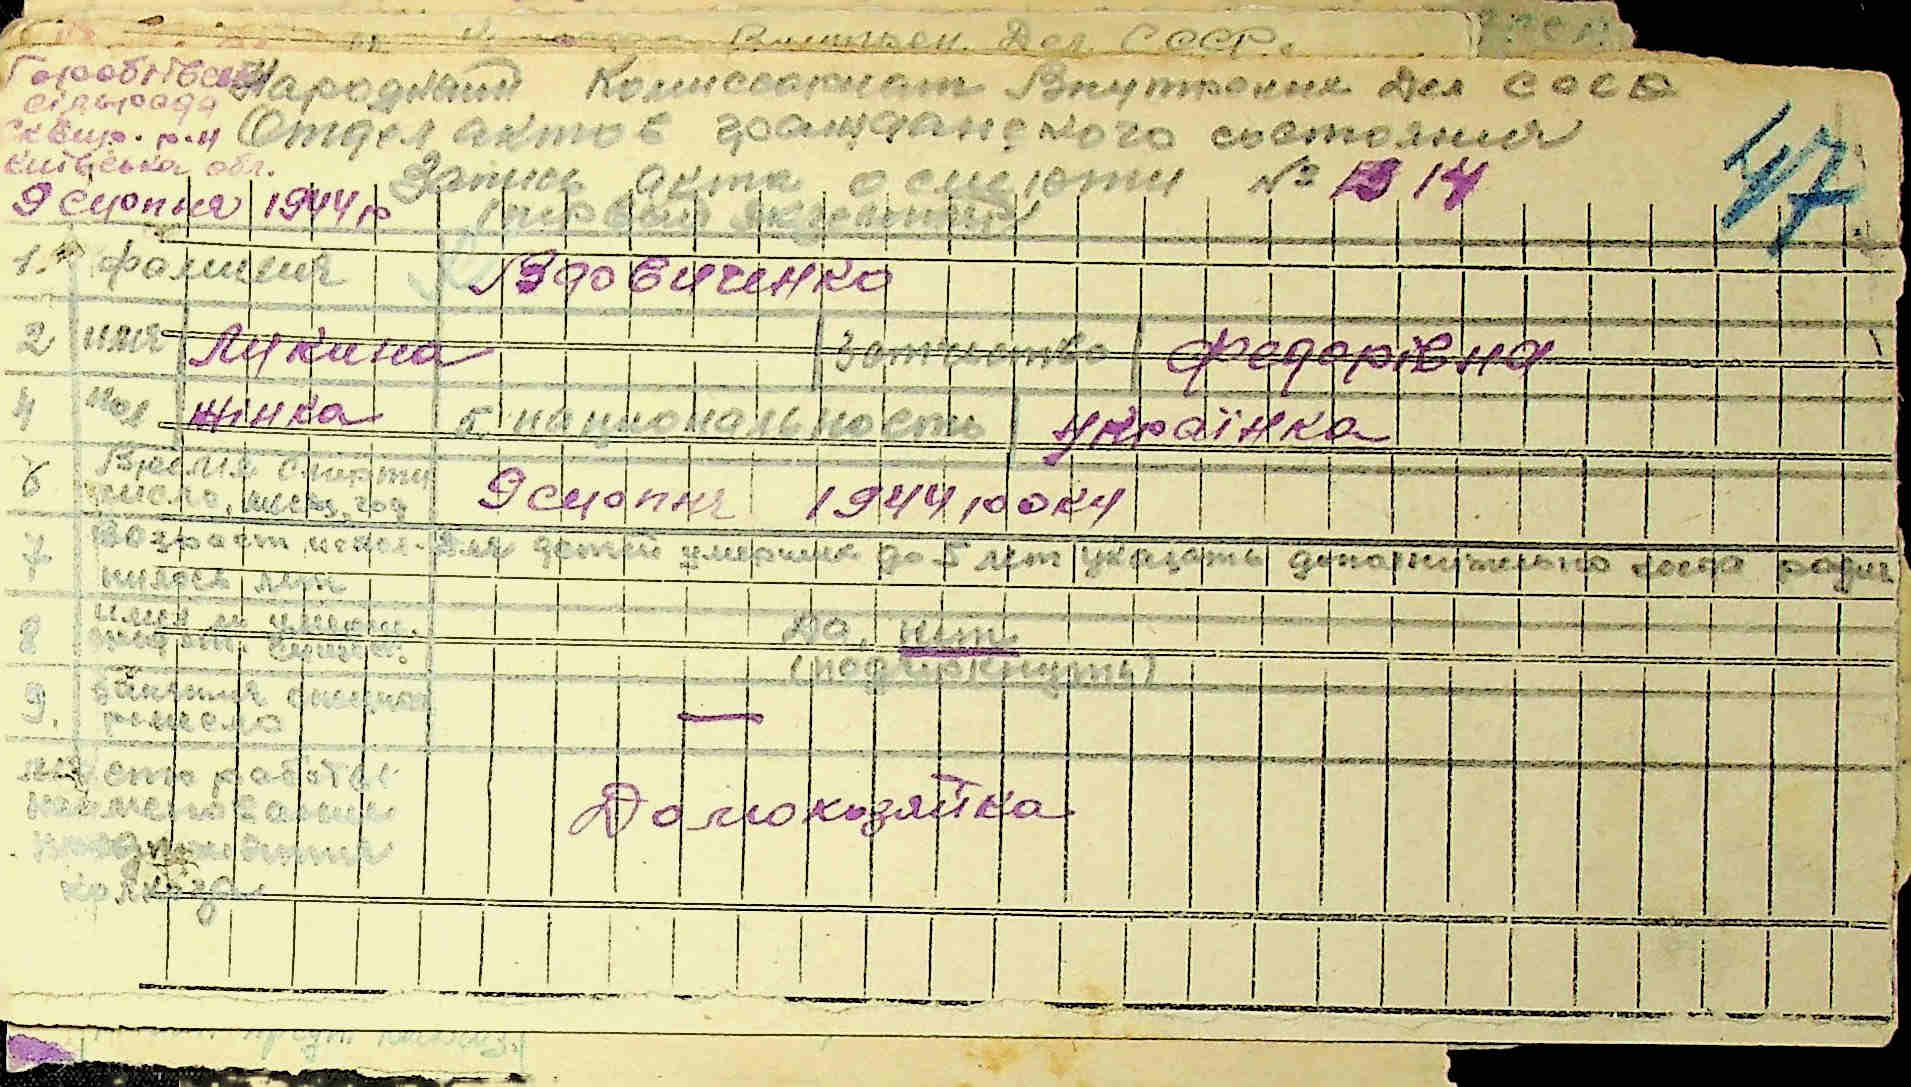 Внутрен. Дел СССР.
Горобіївська
сільрада
Сквир. р-н
Київська обл.
9 серпня 1944 р
Народный Комиссариат Внутрених Дел СССР
Отдел актов гражданского состояния
Запись акта о смерти № 14
(первый экземпляр)
47
1. фамилия Вдовиченко
2 имя Лукина 3 отчество Федорівна
4 пол жінка 5 национальность українка
6 Время смерти число, месяц, год 9 серпня 1944 року
7 Возраст испол- Для детей умерших до 5 лет указать дополнительно когда родил
нилось лет
8 Да, нет
(подчеркнуть)
9. ремесло —
место работы
наименование Домохозяйка
предприятия
колхоза